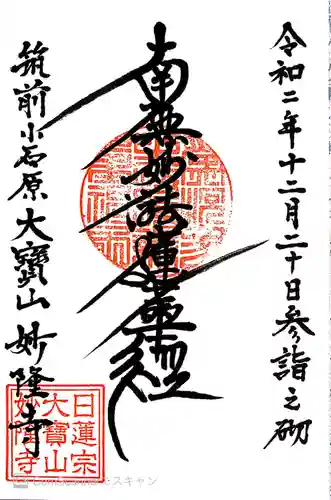 令和二年十二月二十日参詣之砌
南無妙法蓮華経
筑前小石原大寶山妙隆寺
日蓮宗
大寶山
妙隆寺
スキャン